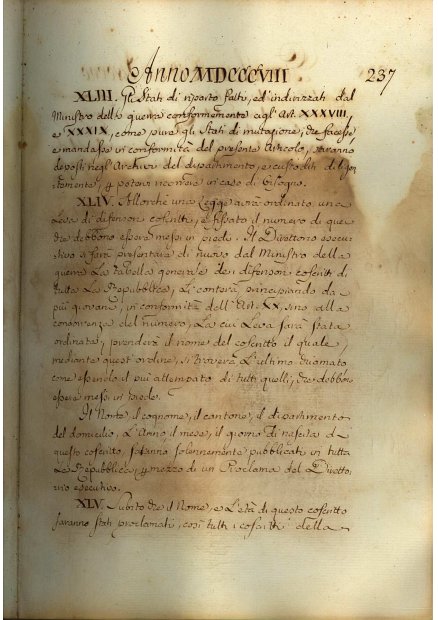 Anno MDCCCVIII 237
XLIII. Gli Stati di riparto fatti, ed' indirizzati dal
Ministro della guerra conformemente agl' Art. XXXVIII.
e XXXIX, come pure gli Stati di mutazione, che facesse
e mandasse in conformità del presente Articolo, saranno
deposti negl' Archivi del dipartimento, e custoditi diligen-
temente, p potervi ricorrere in caso di bisogno.
XLIV. Allorchè una Legge avrà ordinato, una
Leva di difensori coscritti, e fissato il numero di quei
che debbono essere messi in piede. Il Direttorio esecu-
tivo si farà presentare di nuovo dal Ministro della
guerra La tabella generale dei difensori coscritti di
tutta La Repubblica, Li conterà principiando da
più giovani, in conformità dell' Art. XX, sino alla
concorrenza del numero, La cui Leva sarà stata
ordinata, prenderà il nome del coscritto il quale,
mediante quest' ordine, si troverà L'ultimo chiamato
come essendo il più attempato di tutti quelli, che debbon
essere messi in piede.
Il Nome il cognome, il cantone, il dipartimento
del domicilio, L'Anno il mese, il giorno di nascita di
questo coscritto, saranno solennemente pubblicati in tutta
La Repubblica, p mezzo di un Proclama del Diretto-
rio esecutivo.
XLV. Subito che il Nome, e L'età di questo coscritto
saranno stati proclamati, così tutti i coscritti della